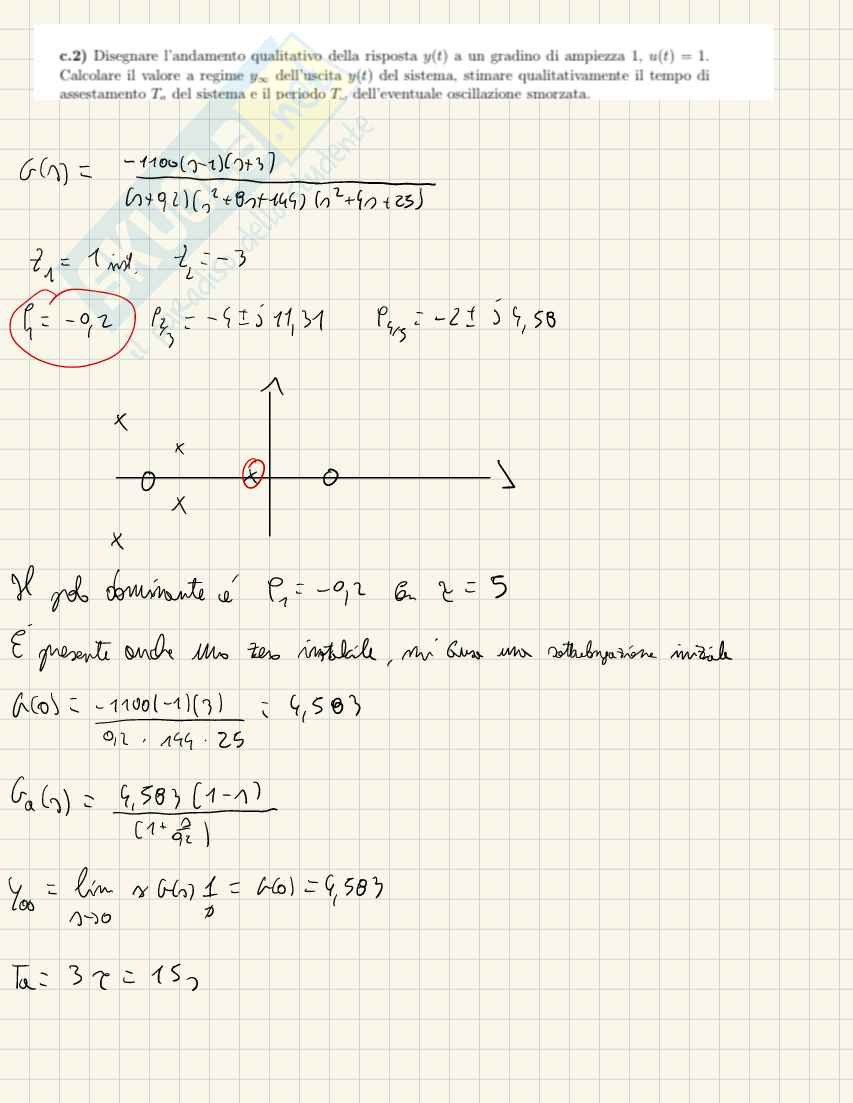 c.2) Disegnare l'andamento qualitativo della risposta y(t) a un gradino di ampiezza 1, u(t) = 1.
Calcolare il valore a regime y∞ dell'uscita y(t) del sistema, stimare qualitativamente il tempo di
assestamento Ta del sistema e il periodo Tω dell'eventuale oscillazione smorzata.
G(s) = -1100(s-1)(s+3)
(s+0,2)(s²+8s+144)(s²+4s+25)
z1 = 1 inst. z2 = -3
P1 = -0,2 P2/3 = -4 ± j 11,31 P4/5 = -2 ± j 4,58
Il polo dominante è P1 = -0,2 con τ = 5
È presente anche uno zero instabile, mi causa una sottoelongazione iniziale
G(0) = -1100(-1)(3) = 4,583
0,2 · 144 · 25
Ga(s) = 4,583 (1-s)
(1 + s/0,2)
y∞ = lim s G(s) 1/s = G(0) = 4,583
s→0
Ta = 3 τ = 15 s
SKUOLA.net
il paradiso dello studente